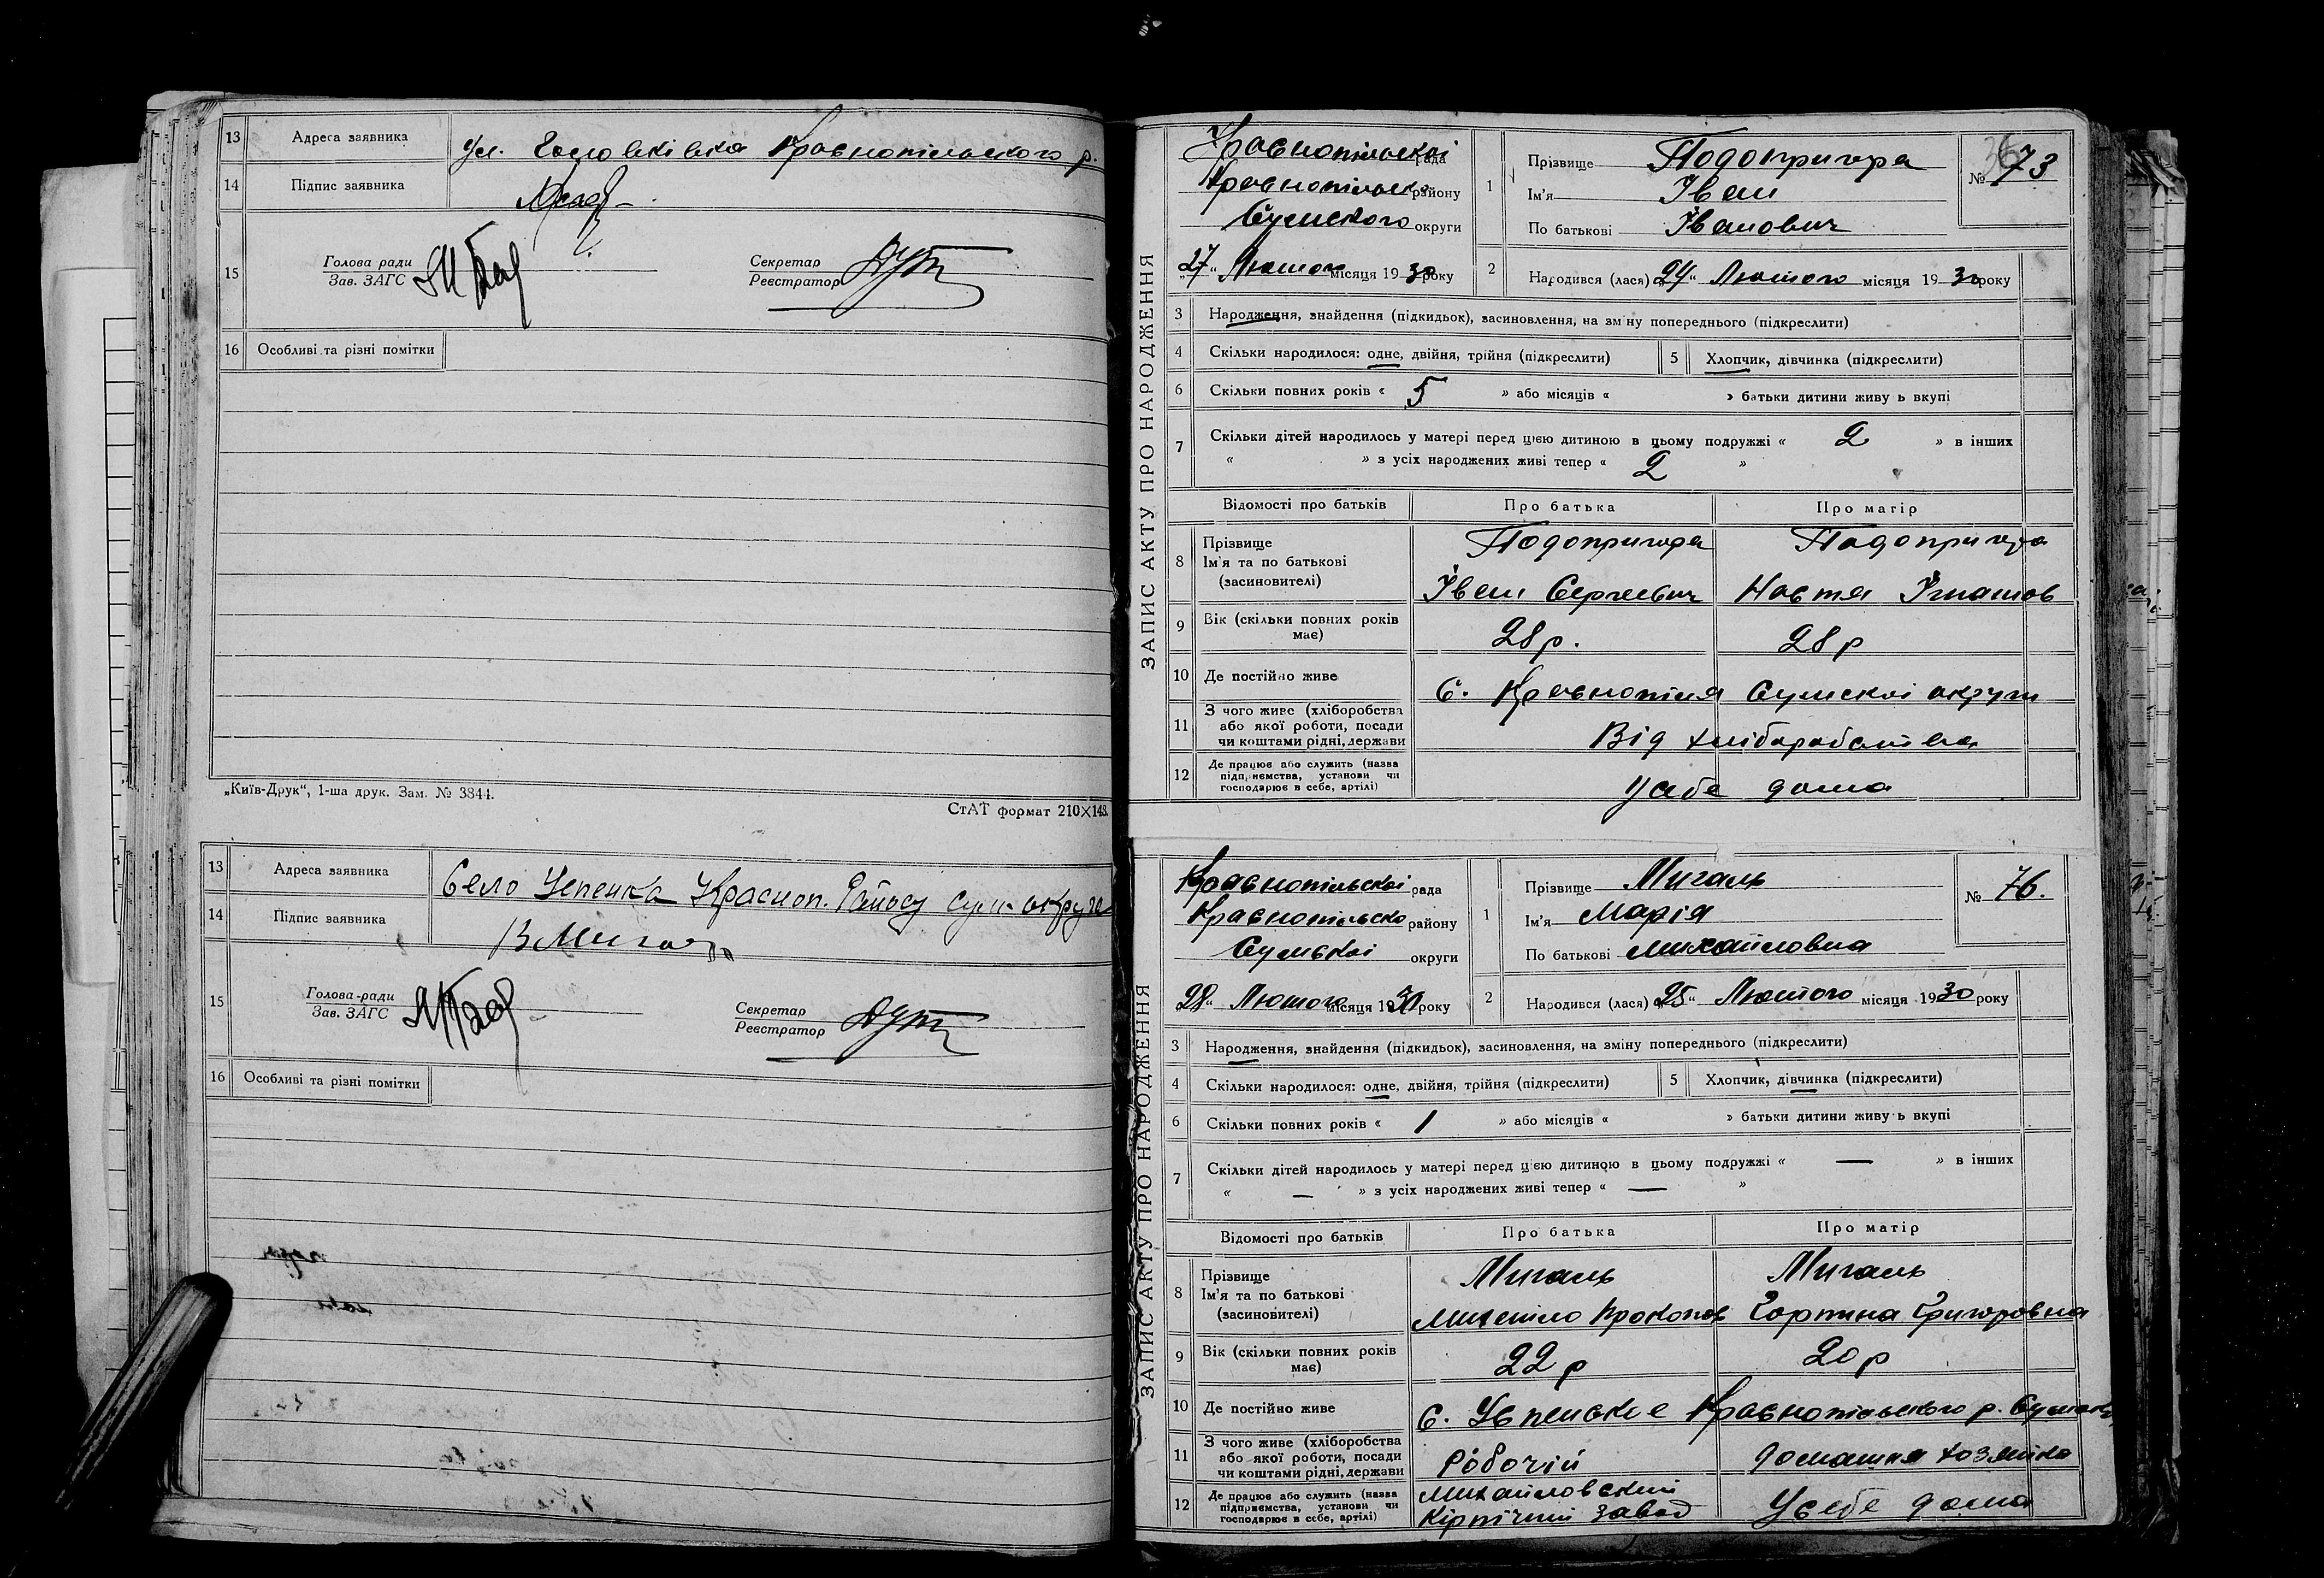 13 Адреса заявника Ул. Краснопільского р.
14 Підпис заявника
15 Голова ради
Зав. ЗАГС
Секретар
Реєстратор
16 Особливі та різні помітки
„Київ-Друк“, 1-ша друк. Зам. № 3844.
СтАТ формат 210×148.
13 Адреса заявника Село Успенка Красноп. Району Сум. округа
14 Підпис заявника В Мигаль
15 Голова ради
Зав. ЗАГС
Секретар
Реєстратор
16 Особливі та різні помітки
ЗАПИС АКТУ ПРО НАРОДЖЕННЯ
Краснопільскоі рада
Краснопільско району
Сумского округи
„27“ Лютого місяця 1930 року
1 Прізвище Подопригора
Ім'я Іван
По батькові Іванович
№ 73
2 Народився (лася) „24“ Лютого місяця 1930 року
3 Народження, знайдення (підкидьок), засиновлення, на зміну попереднього (підкреслити)
4 Скільки народилося: одне, двійня, трійня (підкреслити) 5 Хлопчик, дівчинка (підкреслити)
6 Скільки повних років « 5 » або місяців « » батьки дитини живу ь вкупі
7 Скільки дітей народилось у матері перед цією дитиною в цьому подружжі « 2 » в інших
« » з усіх народжених живі тепер « 2 »
Відомості про батьків Про батька Про матір
8 Прізвище
Ім'я та по батькові
(засиновителі)
Подопригора Подопригора
Іван Сергеевич Настя Ігнатов
9 Вік (скільки повних років має) 28 р. 28 р
10 Де постійно живе С. Краснопілля Сумскоі округи
11 З чого живе (хліборобства
або якої роботи, посади
чи коштами рідні, держави
Від хліборобства
12 Де працює або служить (назва
підприємства, установи чи
господарює в себе, артілі)
У себе дома
ЗАПИС АКТУ ПРО НАРОДЖЕННЯ
Краснопільскоі рада
Краснопільско району
Сумськоі округи
„28“ Лютого місяця 1930 року
1 Прізвище Мигаль
Ім'я Марія
По батькові Михайловна
№ 76.
2 Народився (лася) „25“ Лютого місяця 1930 року
3 Народження, знайдення (підкидьок), засиновлення, на зміну попереднього (підкреслити)
4 Скільки народилося: одне, двійня, трійня (підкреслити) 5 Хлопчик, дівчинка (підкреслити)
6 Скільки повних років « 1 » або місяців « » батьки дитини живу ь вкупі
7 Скільки дітей народилось у матері перед цією дитиною в цьому подружжі « — » в інших
« — » з усіх народжених живі тепер « — »
Відомості про батьків Про батька Про матір
8 Прізвище
Ім'я та по батькові
(засиновителі)
Мигаль Мигаль
Михайло Прокопов Горпина Григоровна
9 Вік (скільки повних років має) 22 р 20 р
10 Де постійно живе С. Успенське Краснопільского р. Сумско
11 З чого живе (хліборобства
або якої роботи, посади
чи коштами рідні, держави
Робочій домашня хозяйка
12 Де працює або служить (назва
підприємства, установи чи
господарює в себе, артілі)
Михайловский
Кірпічний завод
У себе дома